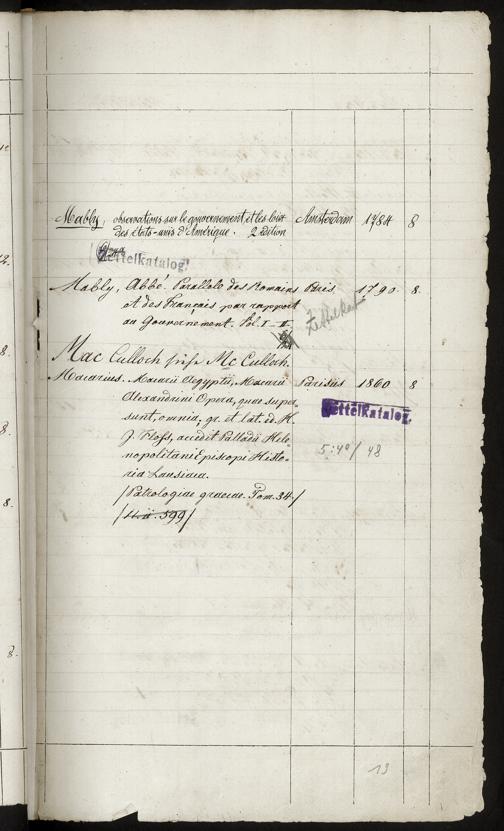 Mably, observations sur le gouvernement et les loix Amsterdam 1784 8
des états-unis d'Amérique. 2 edition
Zettelkatalog!
Mably, Abbé. Parallele des Romains Paris 1790 8.
et des Français par rapport
au Gouvernement. Vol. I-II.
Zettelkat
Mac Culloch siehe Mc Culloch.
Macarius. Macarii Aegyptii, Macarii Parisiis 1860 8
Alexandrini Opera, quae super
sunt, omnia, gr. et lat. ed. H.
J. Floss, accedit Palladii Hele-
nopolitani Episcopi Histo-
ria Lausiaca.
/Patrologiae graecae. Tom. 34./
Zettelkatalog.
5:40/48
13